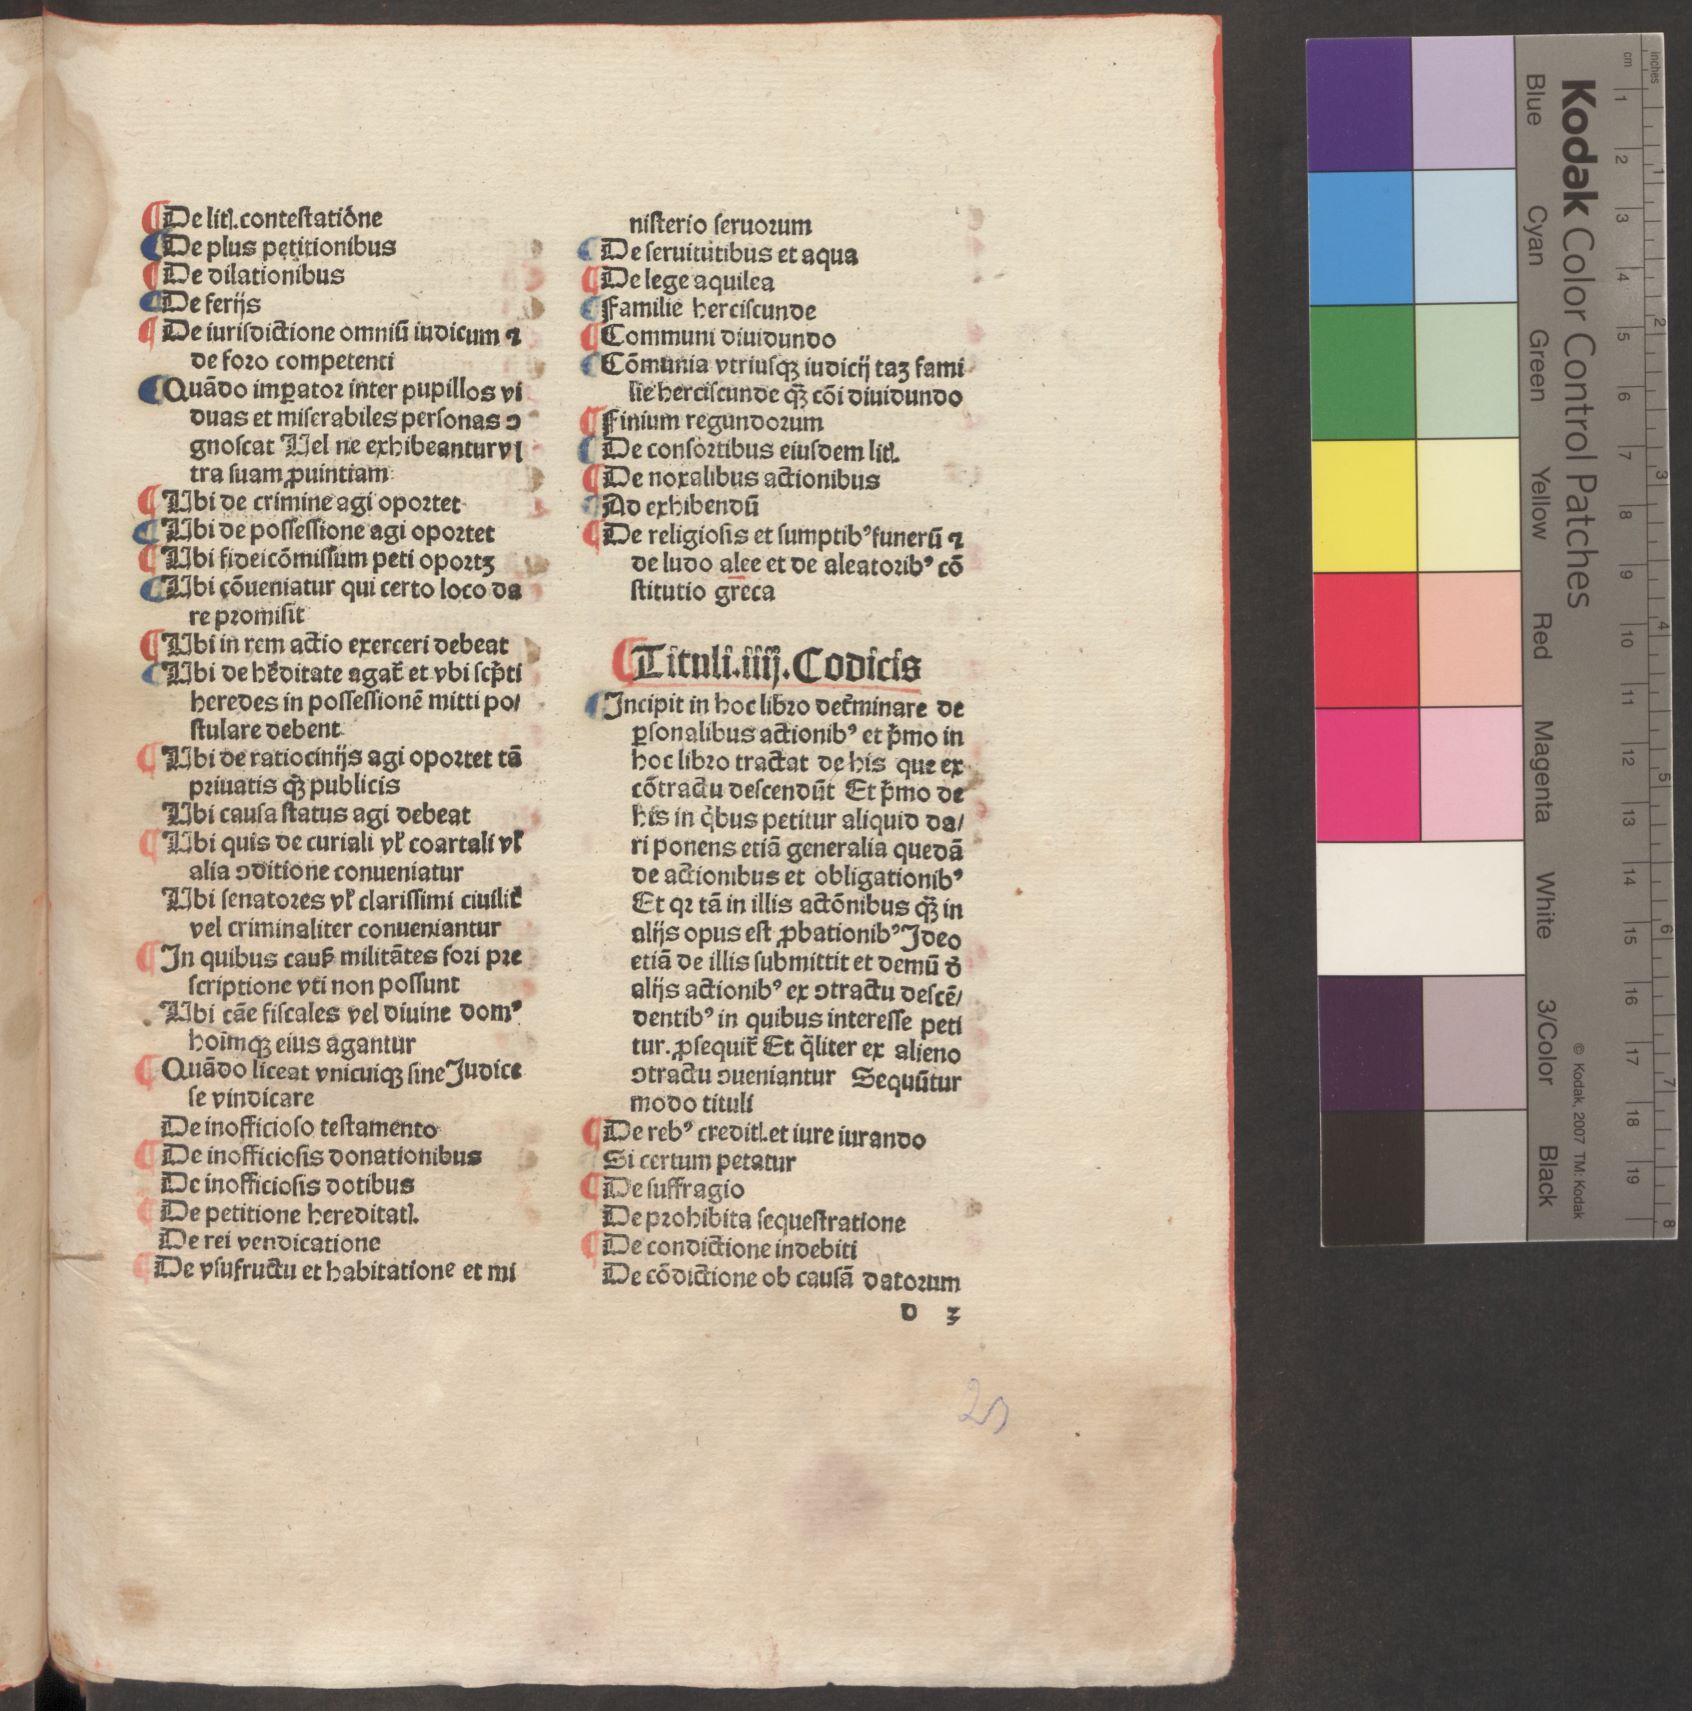 De litꝉ.contestatiōne
De plus petitionibus
De dilationibus
De ferijs
De iurisdictione omniū iudicum ⁊
de foro competenti
Quādo imꝑator inter pupillos vi
duas et miserabiles personas ↄ
gnoscat Uel ne exhibeantur vl
tra suam ꝓuintiam
Ubi de crimine agi oportet
Ubi de possessione agi oportet
Ubi fideicōmissum peti oportꝫ
Ubi cōueniatur qui certo loco da
re promisit
Ubi in rem actio exerceri debeat
Ubi de he͂ditate agat͂ et vbi scp͂ti
heredes in possessionē mitti po/
stulare debent
Ubi de ratiocinijs agi oportet tā
priuatis qꝫ̄ publicis
Ubi causa status agi debeat
Ubi quis de curiali vꝉ coartali vꝉ
alia ↄditione conueniatur
Ubi senatores vꝉ clarissimi ciuilit͂
vel criminaliter conueniantur
In quibus cauß militātes fori pre
scriptione vti non possunt
Ubi cāe fiscales vel diuine domꝰ
hoīmqꝫ eius agantur
Quādo liceat vnicuiqꝫ sine Judice
se vindicare
De inofficioso testamento
De inofficiosis donationibus
De inofficiosis dotibus
De petitione hereditatꝉ.
De rei vendicatione
De vsufructu et habitatione et mi
nisterio seruorum
De seruitutibus et aqua
De lege aquilea
Familie herciscunde
Communi diuidundo
Cōmunia vtriusqꝫ iudicij taꝫ fami
lie herciscunde qꝫ̄ cōi diuidundo
Finium regundorum
De consortibus eiusdem litꝉ.
De noxalibus actionibus
Ad exhibendū
De religiosis et sumptibꝰ funerū ⁊
de ludo alee et de aleatoribꝰ cō
stitutio greca
Tituli.iiij.Codicis
Incipit in hoc libro det͂minare de
ꝑsonalibus actionibꝰ et p͂mo in
hoc libro tractat de his que ex
cōtractu descendūt Et p͂mo de
his in q̇bus petitur aliquid da/
ri ponens etiā generalia quedā
de actionibus et obligationibꝰ
Et qꝛ tā in illis actōnibus qꝫ̄ in
alijs opus est ꝓbationibꝰ Ideo
etiā de illis submittit et demū d͂
alijs actionibꝰ ex ↄtractu descē/
dentibꝰ in quibus interesse peti
tur.ꝓsequit͂ Et q̄liter ex alieno
ↄtractu ↄueniantur Sequūtur
modo tituli
De rebꝰ creditꝉ.et iure iurando
Si certum petatur
De suffragio
De prohibita sequestratione
De condictione indebiti
De cōdictione ob causā datorum
d 3
Kodak Color Control Patches
Blue Cyan Green Yellow Red Magenta White 3/Color Black
© Kodak, 2007 TM: Kodak
inches 1 2 3 4 5 6 7 8
cm 1 2 3 4 5 6 7 8 9 10 11 12 13 14 15 16 17 18 19